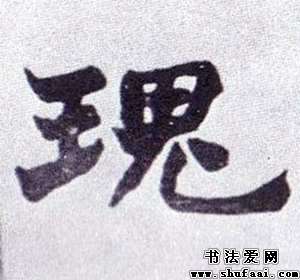 瑰
书法爱网
www.shufaai.com